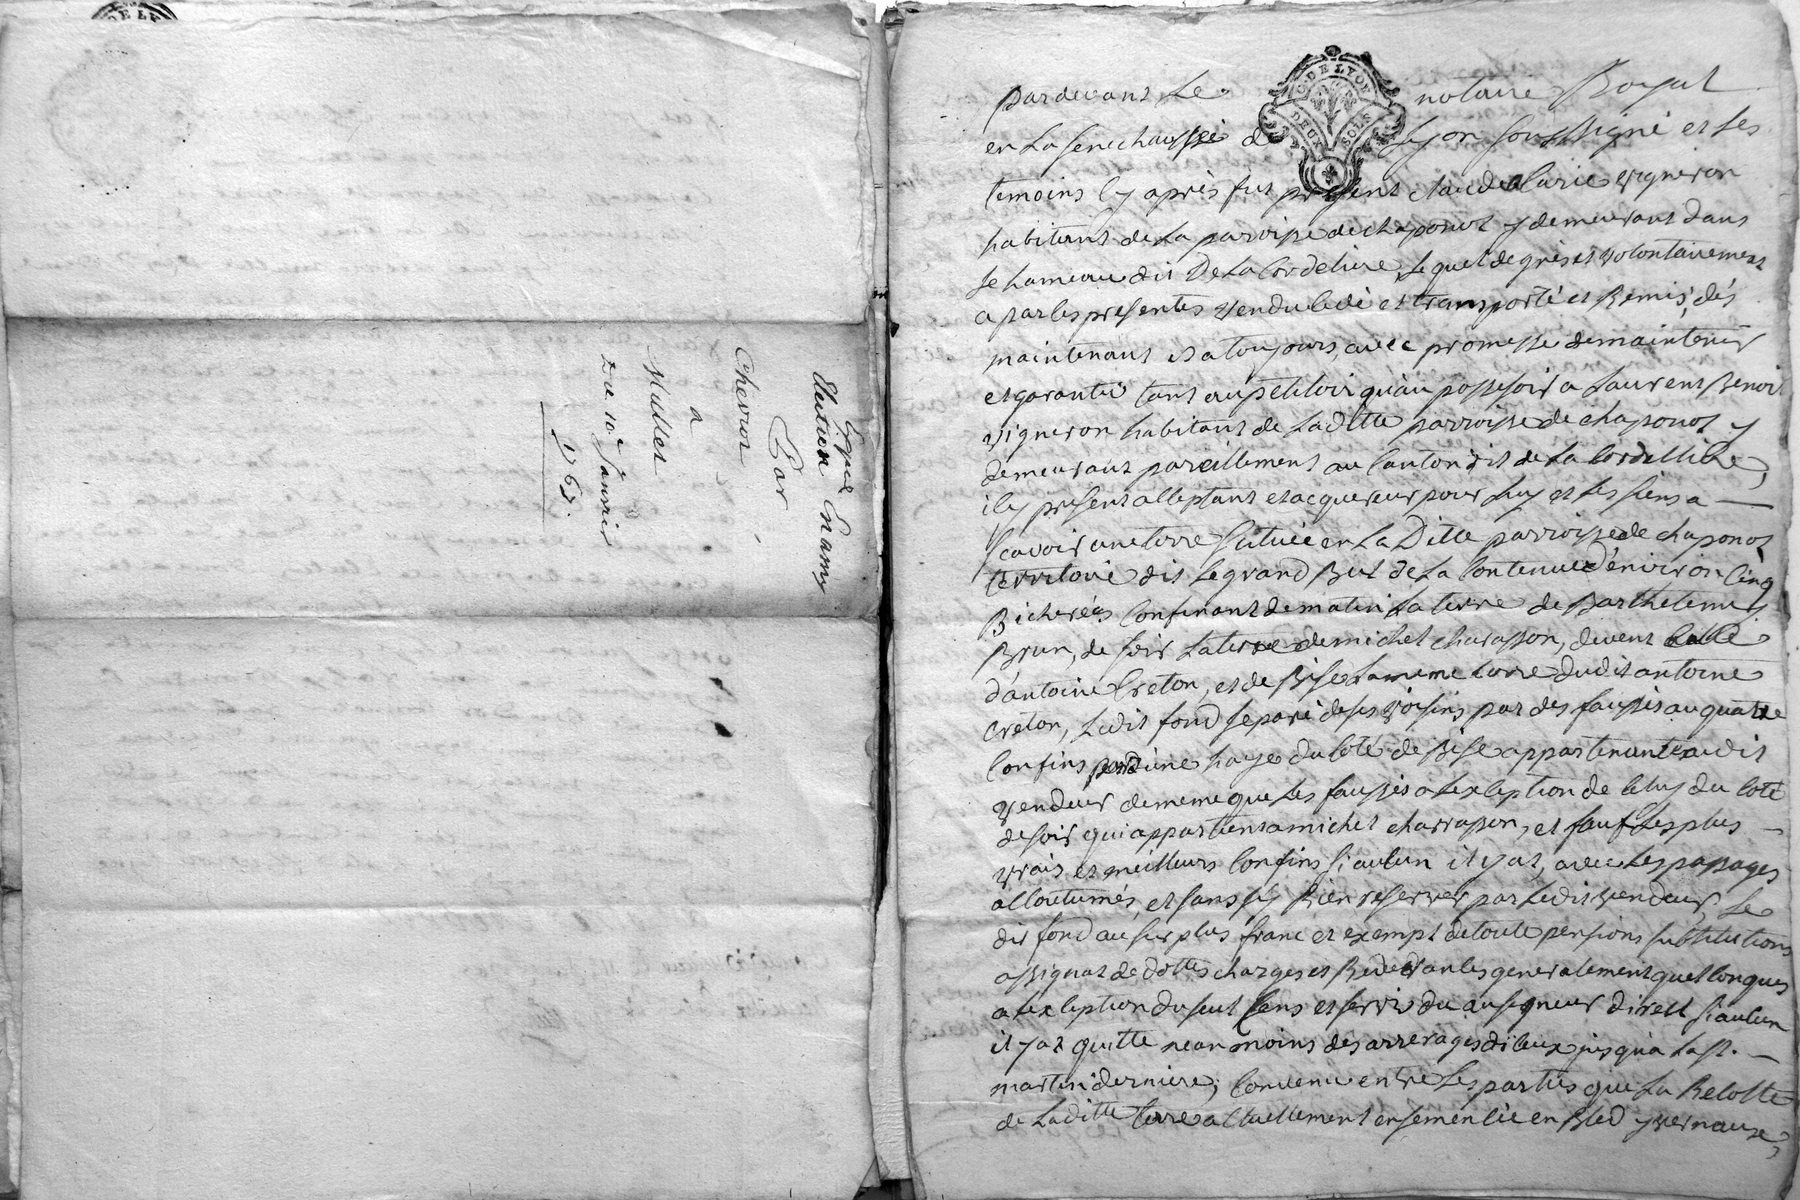 Election en amy
Par
Chevrot
a
Mullet
Du 10e Janvier
176
G. DE LYON
DEUX SOLS
Pardevant Le notaire Royal
en La senechaussée de Lyon soussigné et les
temoins cy après fut présent claude vigneron
habitant de La parroisse de chaponost y demeurant dans
le hameau dit De La Cordeliere, Lequel de gré et volontairement
a par les presentes vendu cédé et transporté et Remis, dés
maintenant et a toujours, avec promesse de maintenir
et garantir tant au petitoir qu'au possesoir a Laurent Benoit
vigneron habitant de Laditte parroisse de chaponost y
demeurant pareillement au Canton dit de La Cordelliere,
icy present acceptant et acquereur pour Luy et Les siens a
scavoir une terre scituée en La Ditte parroisse de chaponost
territoire dit Le grand But de La Contenue d'environ Cinq
Bicherées Confinant de matin La terre de Barthelemy
Brun, de soir La terre de michel charasson, de vent celle
d'antoine Creton, et de Bise La meme terre dudit antoine
creton, Ledit fond separé de ses voisins par des faussés au quatre
Confins par une haye du coté de Bise appartenante audit
vendeur de meme que Les faussés a L'exception de celuy du coté
de soir qui appartient a michel charrasson, et sauf Les plus
vrais et meilleurs Confins si aucun il y a, avec Les passages
accoutumés, et sans s'y Rien reserver par Ledit vendeur, Le
dit fond au surplus franc et exempt de toute pensions substitutions
assignat de dottes charges et Redevances generalement quelconques
a L'exception du seul Cens et servis du au seigneur direct si aucun
il y a quitte neanmoins des arrerages d'iceux jusqu'a La st.
martin derniere; Convenu entre Les parties que La Recolte
de Laditte terre actuellement ensemencée en Bled yvernaux,